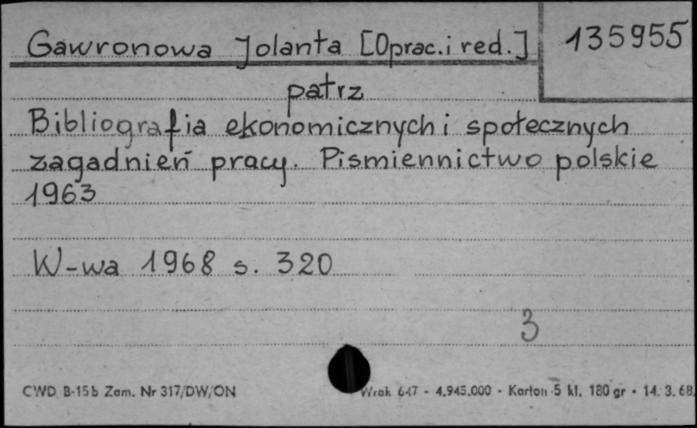 Gawronowa Jolanta [Oprac. i red.] 135955
patrz
Bibliografia ekonomicznych i społecznych
zagadnień pracy. Pismiennictwo polskie
1963
W-wa 1968 s. 320
3
CWD B-15b Zam. Nr 317/DW/ON Wrak 647 - 4.945.000 - Karton 5 kl. 180 gr - 14. 3. 68.